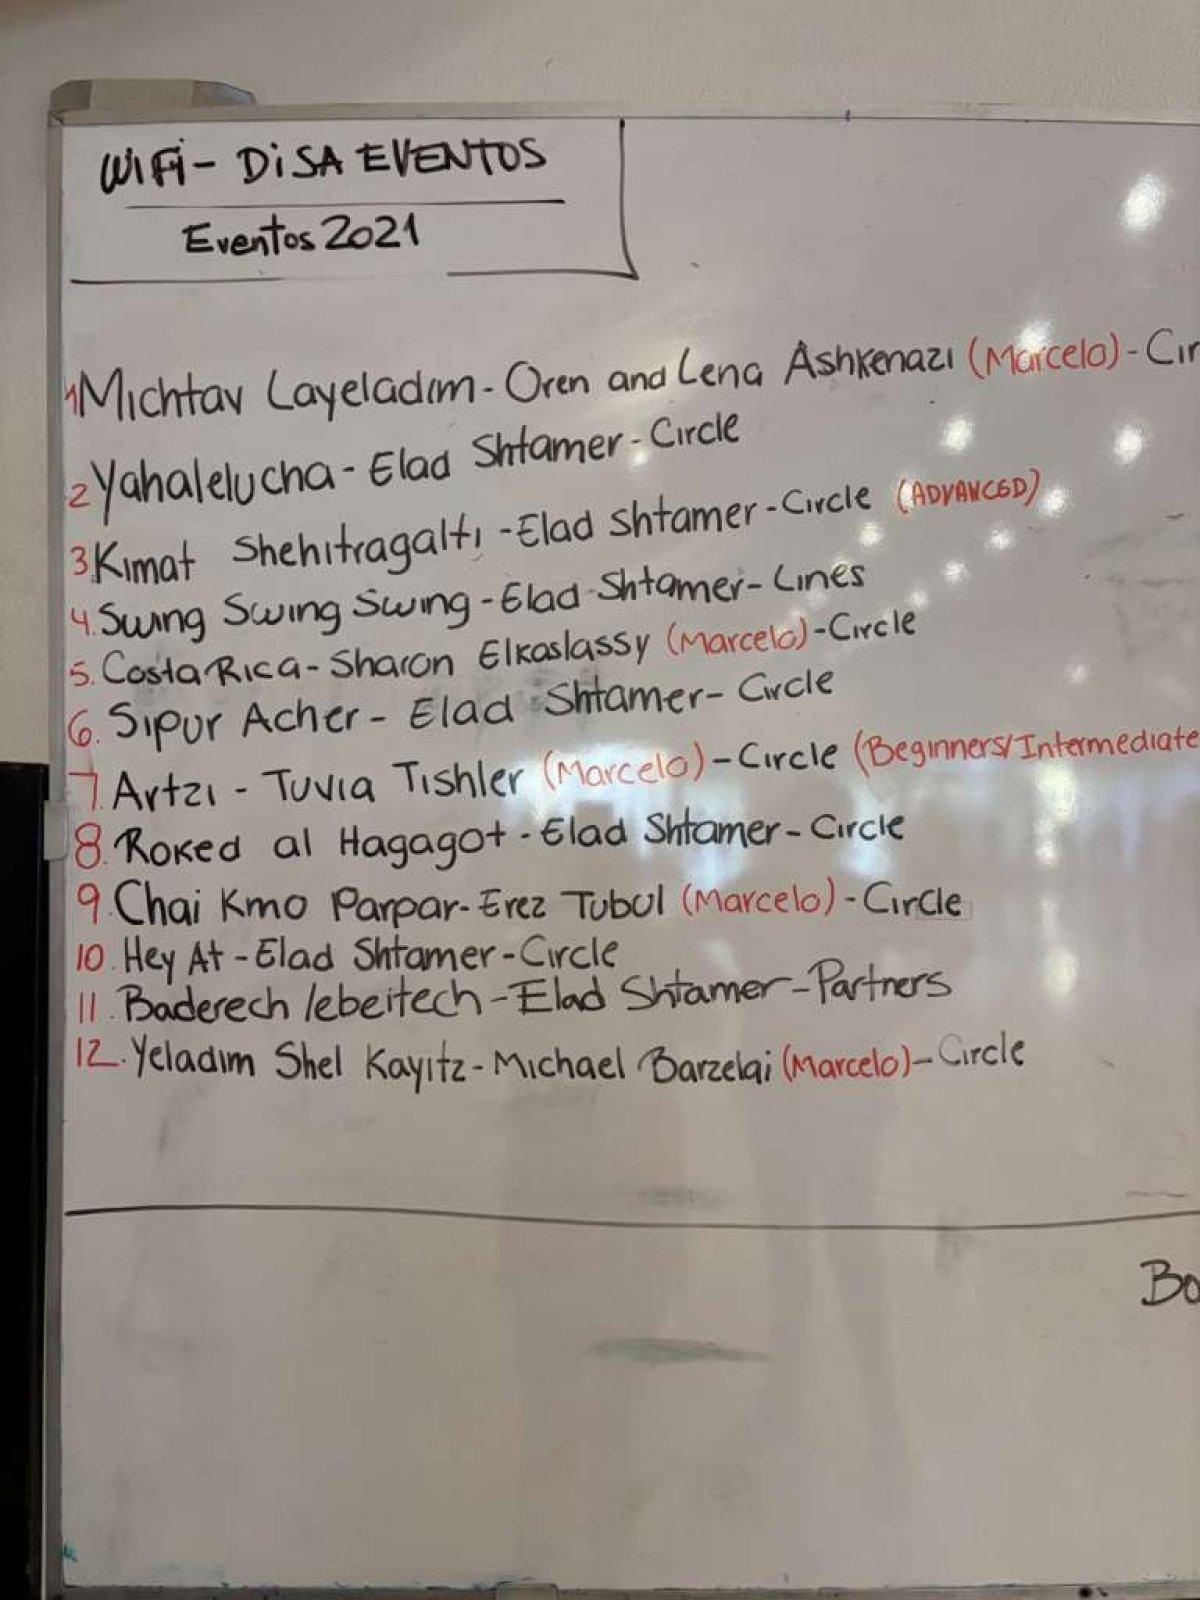 WiFi - DiSA EVENTOS
Eventos 2021
1 Michtav Layeladim - Oren and Lena Ashkenazi (Marcelo) - Cir
2 Yahalelucha - Elad Shtamer - Circle
3. Kimat Shehitragalti - Elad Shtamer - Circle (ADVANCED)
4. Swing Swing Swing - Elad Shtamer - Lines
5. Costa Rica - Sharon Elkaslassy (Marcelo) - Circle
6. Sipur Acher - Elad Shtamer - Circle
7. Artzi - Tuvia Tishler (Marcelo) - Circle (Beginners/Intermediate
8. Roked al Hagagot - Elad Shtamer - Circle
9 Chai Kmo Parpar - Erez Tubul (Marcelo) - Circle
10. Hey At - Elad Shtamer - Circle
11. Baderech lebeitech - Elad Shtamer - Partners
12. Yeladim Shel Kayitz - Michael Barzelai (Marcelo) - Circle
Bo